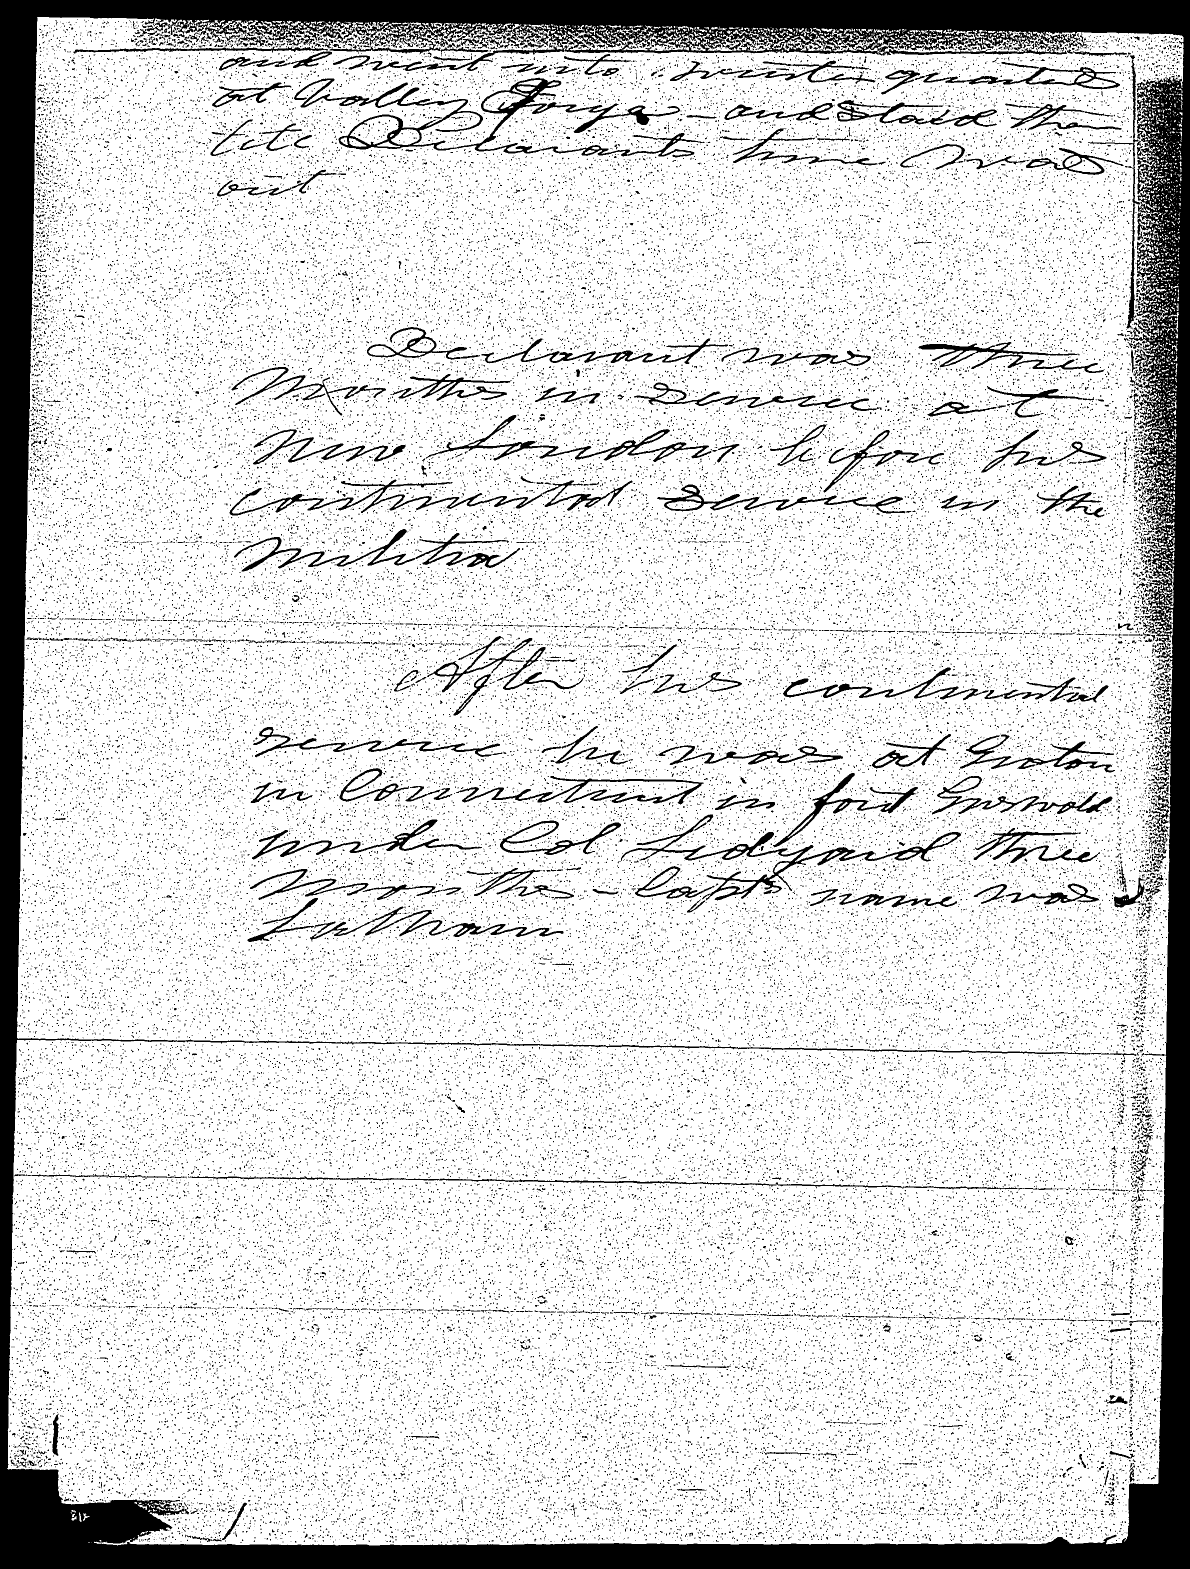 and went into winter quarters
at Valley Forge - and staid there
till Declarants time was
out
Declarant was three
Months in service at
New London before his
continental service in the
militia
After his continental
service he was at Groton
in Connecticut in fort Griswold
under Col Ledyard three
Months - Capts name was
Latham